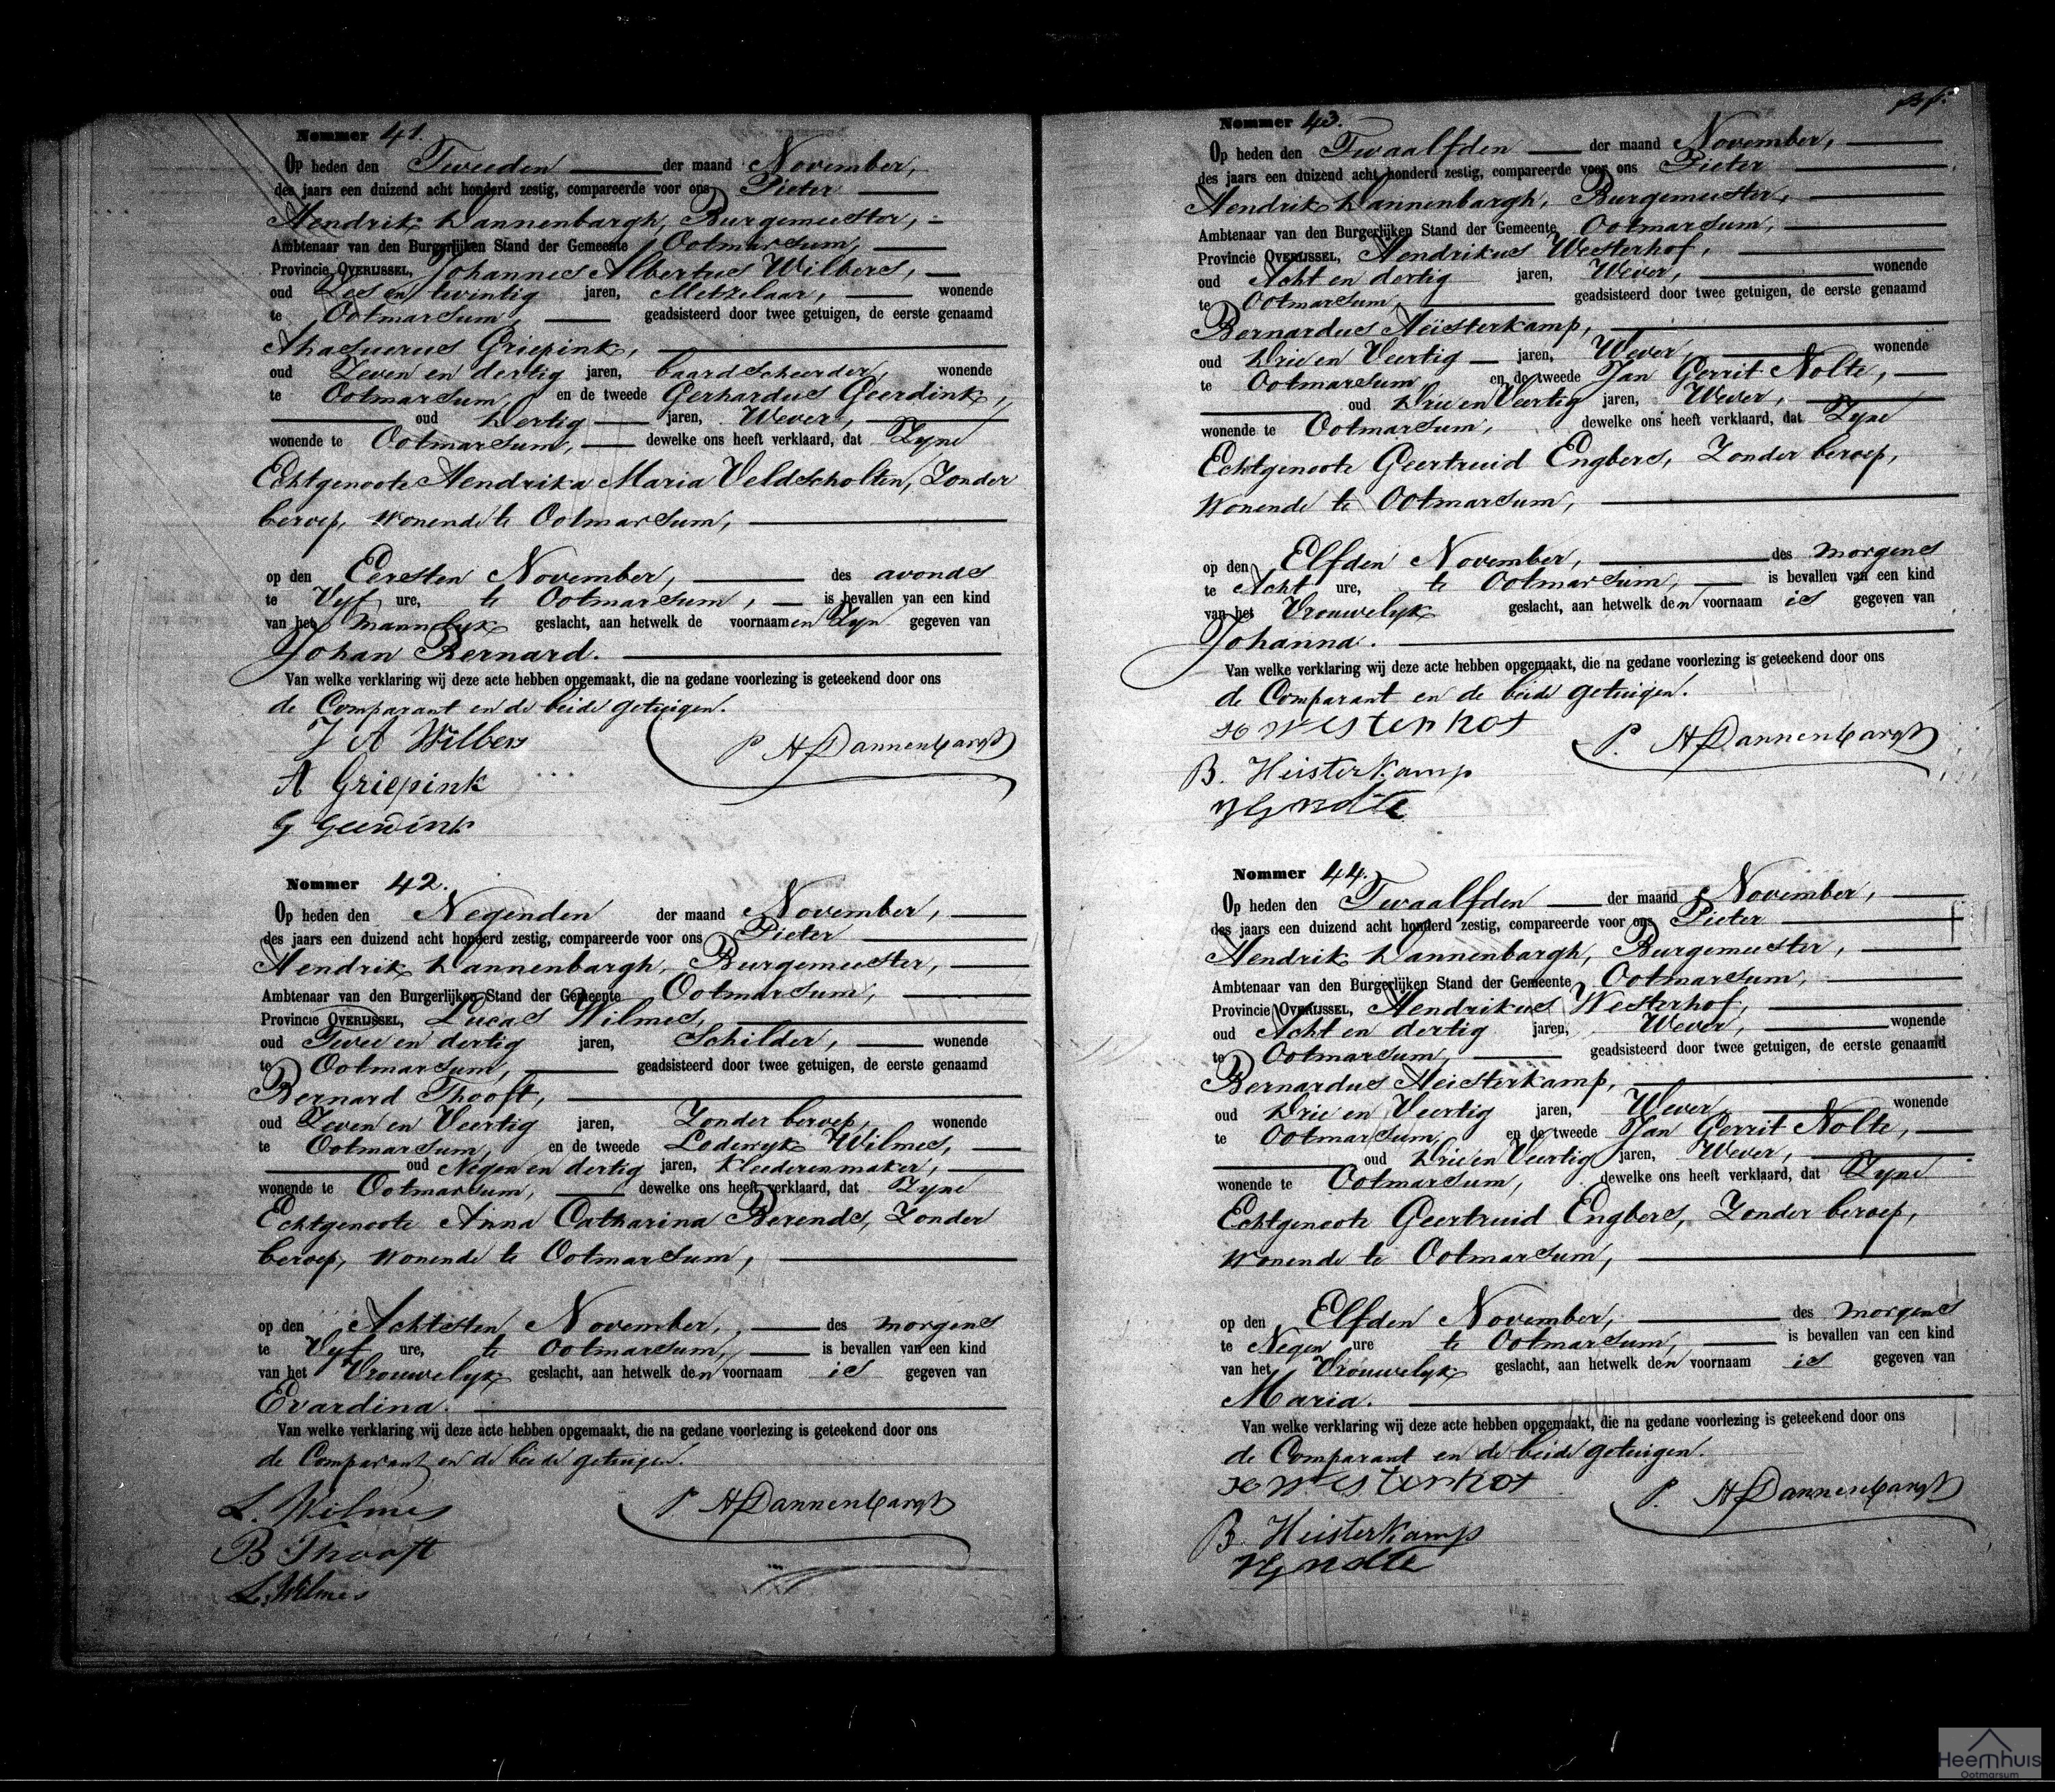 Nommer 41.
Op heden den Tweeden der maand November,
des jaars een duizend acht honderd zestig, compareerde voor ons Pieter
Hendrik Dannenbargh, Burgemeester,
Ambtenaar van den Burgerlijken Stand der Gemeente Ootmarsum,
Provincie OVERIJSSEL, Johannes Albertus Wilbers,
oud Zes en twintig jaren, Metzelaar, wonende
te Ootmarsum, geadsisteerd door twee getuigen, de eerste genaamd
Ahasuerus Griepink,
oud Zeven en dertig jaren, baardscheerder, wonende
te Ootmarsum, en de tweede Gerhardus Geerdink,
oud Dertig jaren, Wever,
wonende te Ootmarsum, dewelke ons heeft verklaard, dat Zyne
Echtgenoote Hendrika Maria Veldscholten, Zonder
beroep, wonende te Ootmarsum,
op den Eersten November, des avonds
te Vyf ure, te Ootmarsum, is bevallen van een kind
van het Mannelyk geslacht, aan hetwelk de voornaamen Zyn gegeven van
Johan Bernard.
Van welke verklaring wij deze acte hebben opgemaakt, die na gedane voorlezing is geteekend door ons
de Comparant en de beide getuigen.
J A Wilbers
P. H Dannenbargh
A Griepink
G Geerdink
Nommer 42.
Op heden den Negenden der maand November,
des jaars een duizend acht honderd zestig, compareerde voor ons Pieter
Hendrik Dannenbargh, Burgemeester,
Ambtenaar van den Burgerlijken Stand der Gemeente Ootmarsum,
Provincie OVERIJSSEL, Lucas Wilmes,
oud Twee en dertig jaren, Schilder, wonende
te Ootmarsum, geadsisteerd door twee getuigen, de eerste genaamd
Bernard Thooft,
oud Zeven en Veertig jaren, Zonder beroep, wonende
te Ootmarsum, en de tweede Lodewyk Wilmes,
oud Negen en dertig jaren, Kleederenmaker,
wonende te Ootmarsum, dewelke ons heeft verklaard, dat Zyne
Echtgenoote Anna Catharina Berends, Zonder
beroep, wonende te Ootmarsum,
op den Achtsten November, des morgens
te Vyf ure, te Ootmarsum, is bevallen van een kind
van het Vrouwelyk geslacht, aan hetwelk den voornaam is gegeven van
Evardina.
Van welke verklaring wij deze acte hebben opgemaakt, die na gedane voorlezing is geteekend door ons
de Comparant en de beide getuigen.
L. Wilmes
P. H Dannenbargh
B Thooft
L. Wilmes
Nommer 43.
Op heden den Twaalfden der maand November,
des jaars een duizend acht honderd zestig, compareerde voor ons Pieter
Hendrik Dannenbargh, Burgemeester,
Ambtenaar van den Burgerlijken Stand der Gemeente Ootmarsum,
Provincie OVERIJSSEL, Hendrikus Westerhof,
oud Acht en dertig jaren, Wever, wonende
te Ootmarsum, geadsisteerd door twee getuigen, de eerste genaamd
Bernardus Heisterkamp,
oud Drie en Veertig jaren, Wever, wonende
te Ootmarsum en de tweede Jan Gerrit Nolte,
oud Drie en Veertig jaren, Wever,
wonende te Ootmarsum, dewelke ons heeft verklaard, dat Zyne
Echtgenoote Geertruid Engbers, Zonder beroep,
wonende te Ootmarsum,
op den Elfden November, des morgens
te Acht ure, te Ootmarsum, is bevallen van een kind
van het Vrouwelyk geslacht, aan hetwelk den voornaam is gegeven van
Johanna.
Van welke verklaring wij deze acte hebben opgemaakt, die na gedane voorlezing is geteekend door ons
de Comparant en de beide getuigen.
H Westerhof
P. H Dannenbargh
B. Heisterkamp
JG Nolte
Nommer 44.
Op heden den Twaalfden der maand November,
des jaars een duizend acht honderd zestig, compareerde voor ons Pieter
Hendrik Dannenbargh, Burgemeester,
Ambtenaar van den Burgerlijken Stand der Gemeente Ootmarsum,
Provincie OVERIJSSEL, Hendrikus Westerhof,
oud Acht en dertig jaren, Wever, wonende
te Ootmarsum, geadsisteerd door twee getuigen, de eerste genaamd
Bernardus Heisterkamp,
oud Drie en Veertig jaren, Wever, wonende
te Ootmarsum, en de tweede Jan Gerrit Nolte,
oud Drie en Veertig jaren, Wever,
wonende te Ootmarsum, dewelke ons heeft verklaard, dat Zyne
Echtgenoote Geertruid Engbers, Zonder beroep,
wonende te Ootmarsum,
op den Elfden November, des morgens
te Negen ure te Ootmarsum, is bevallen van een kind
van het Vrouwelyk geslacht, aan hetwelk den voornaam is gegeven van
Maria.
Van welke verklaring wij deze acte hebben opgemaakt, die na gedane voorlezing is geteekend door ons
de Comparant en de beide getuigen.
H Westerhof
P. H Dannenbargh
B. Heisterkamp
JG Nolte
Heemhuis
Ootmarsum